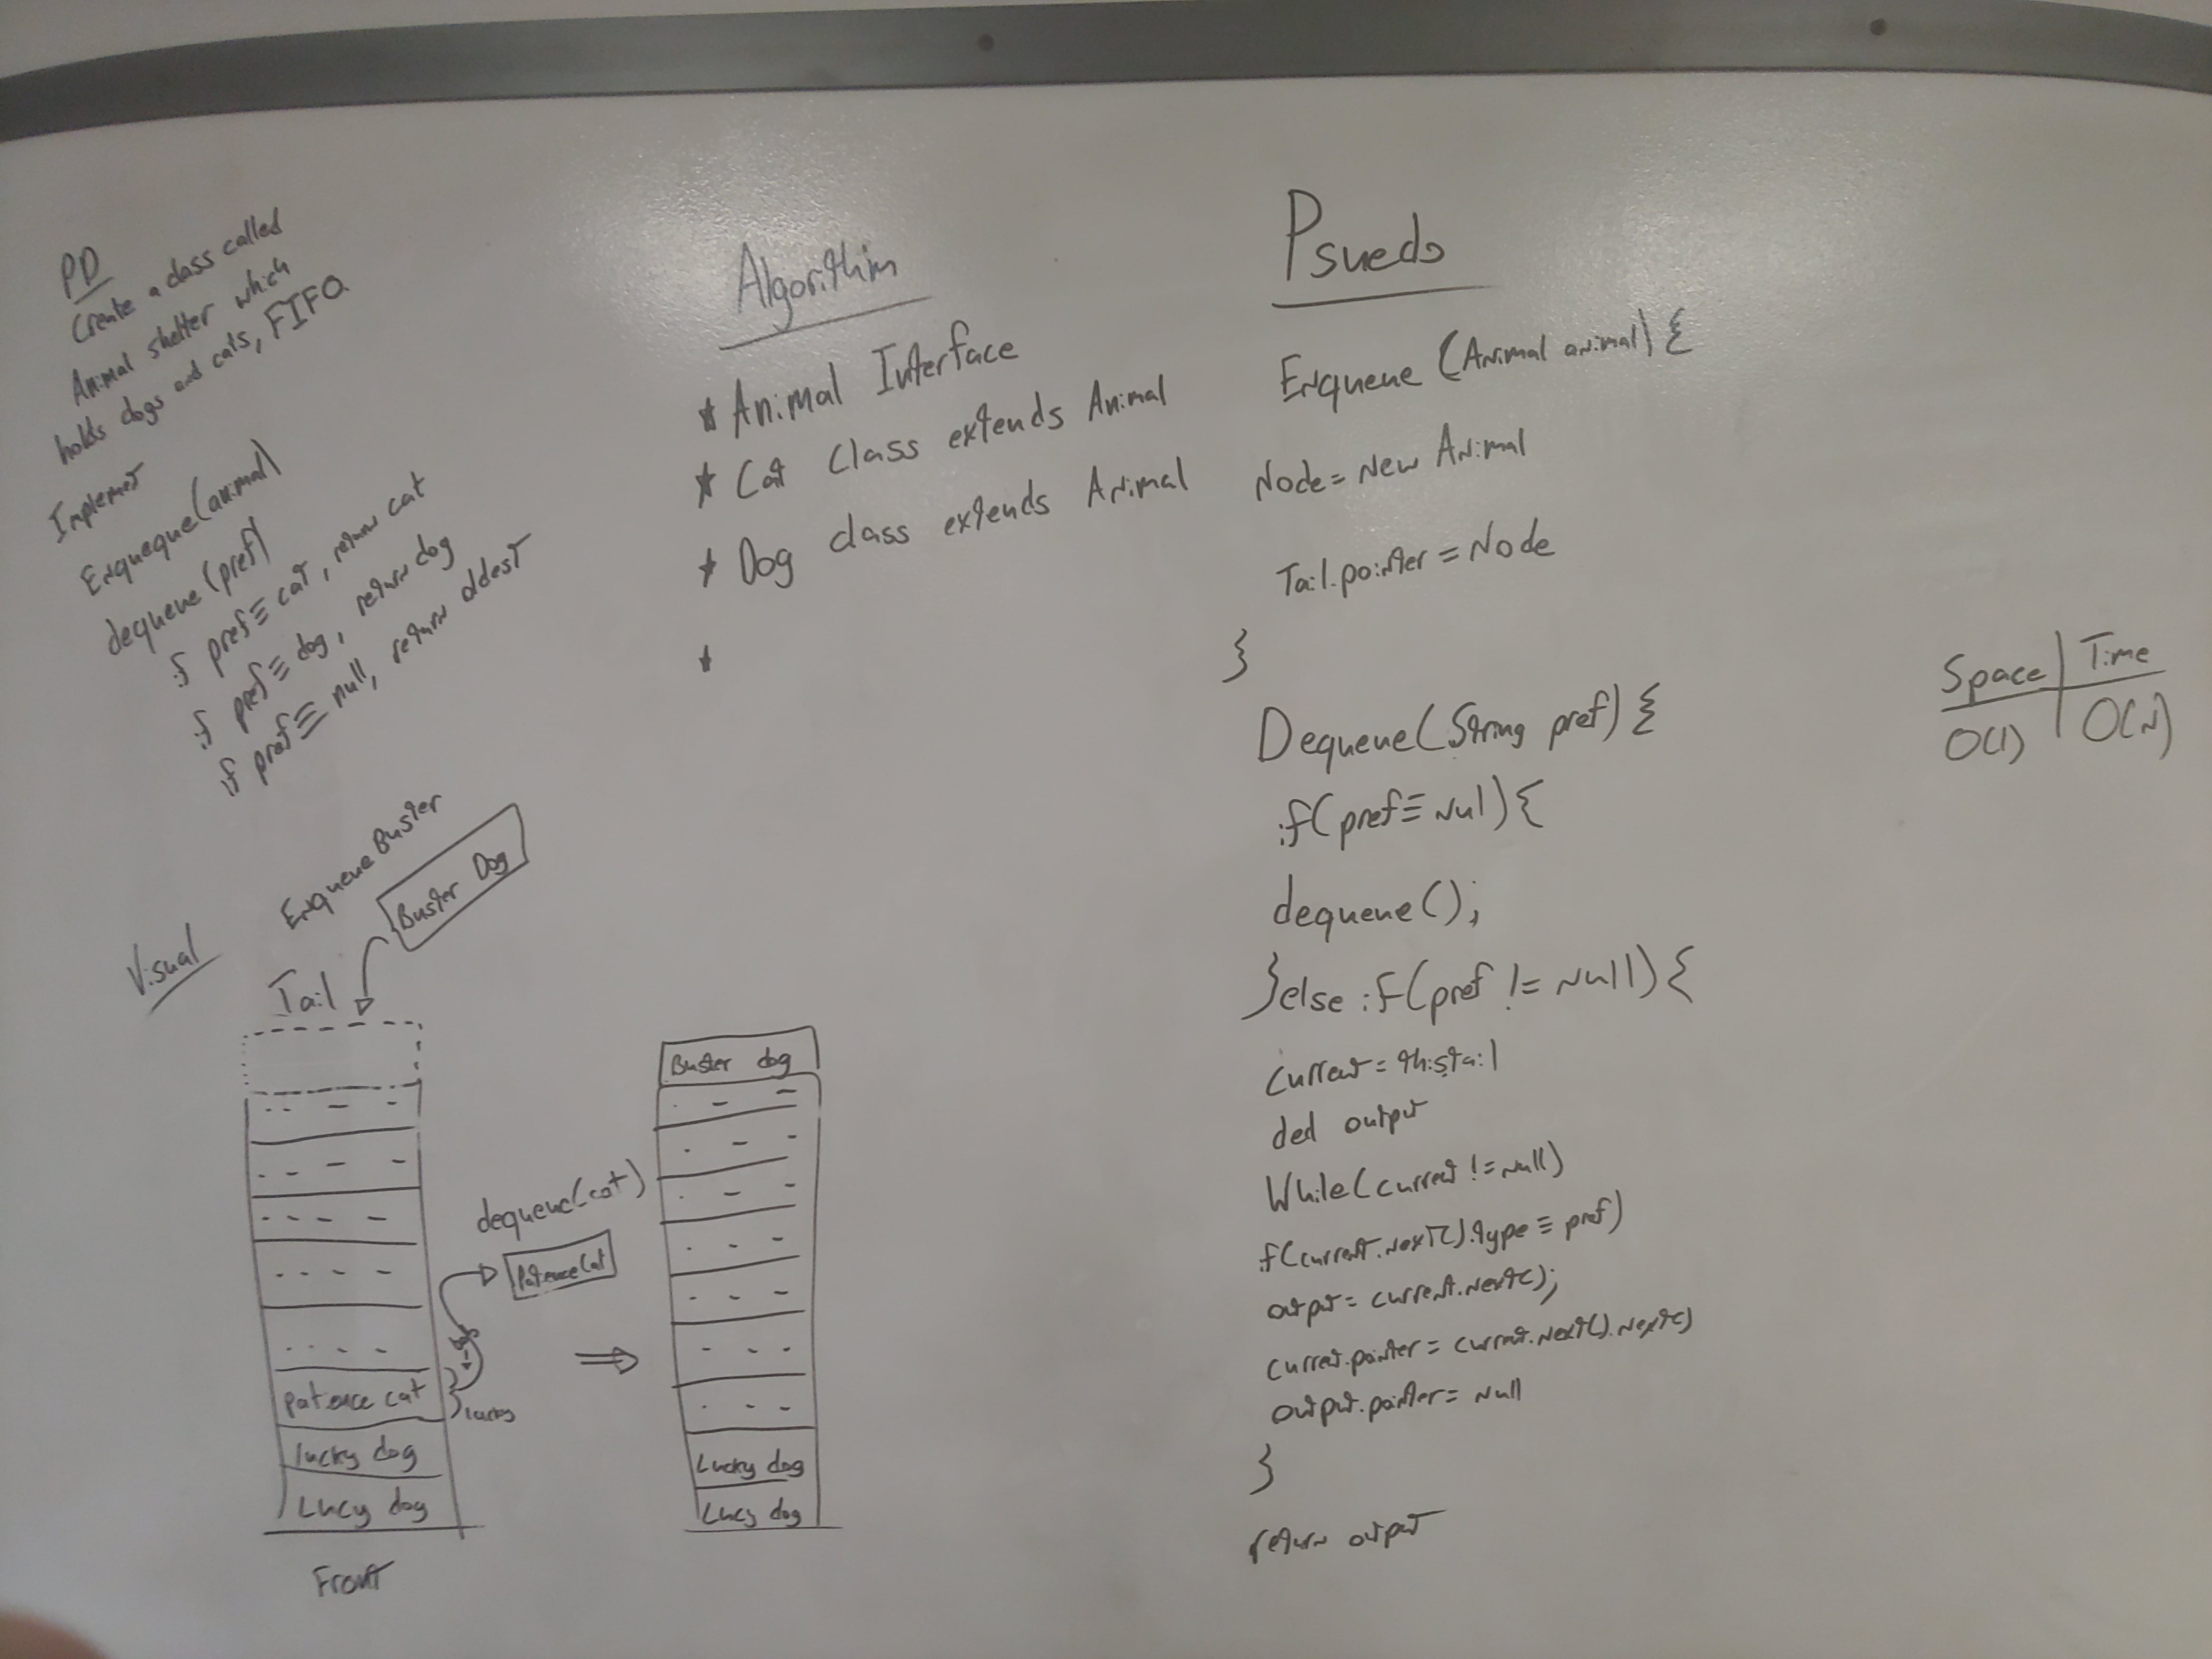 PD
Create a class called
Animal shelter which
holds dogs and cats, FIFO
Implement
Enqueque(animal)
dequeue(pref)
if pref ≡ cat, return cat
if pref ≡ dog, return dog
if pref ≡ null, return oldest
Visual
Enqueue Buster
Buster Dog
Tail
patience cat
lucky dog
Lucy dog
Front
dequeue(cat)
Patience Cat
lucky
⇒
Buster dog
Lucky dog
Lucy dog
Algorithim
* Animal Interface
* Cat Class extends Animal
* Dog class extends Animal
*
Psuedo
Enqueue (Animal animal) {
Node = New Animal
Tail.pointer = Node
}
Dequeue(String pref) {
if(pref ≡ Null) {
dequeue();
}else if(pref != Null) {
Current = this.tail
decl output
While(current != null)
if(current.next().type ≡ pref)
output = current.next();
current.pointer = current.next().next()
output.pointer = null
}
return output
Space | Time
O(1) | O(N)